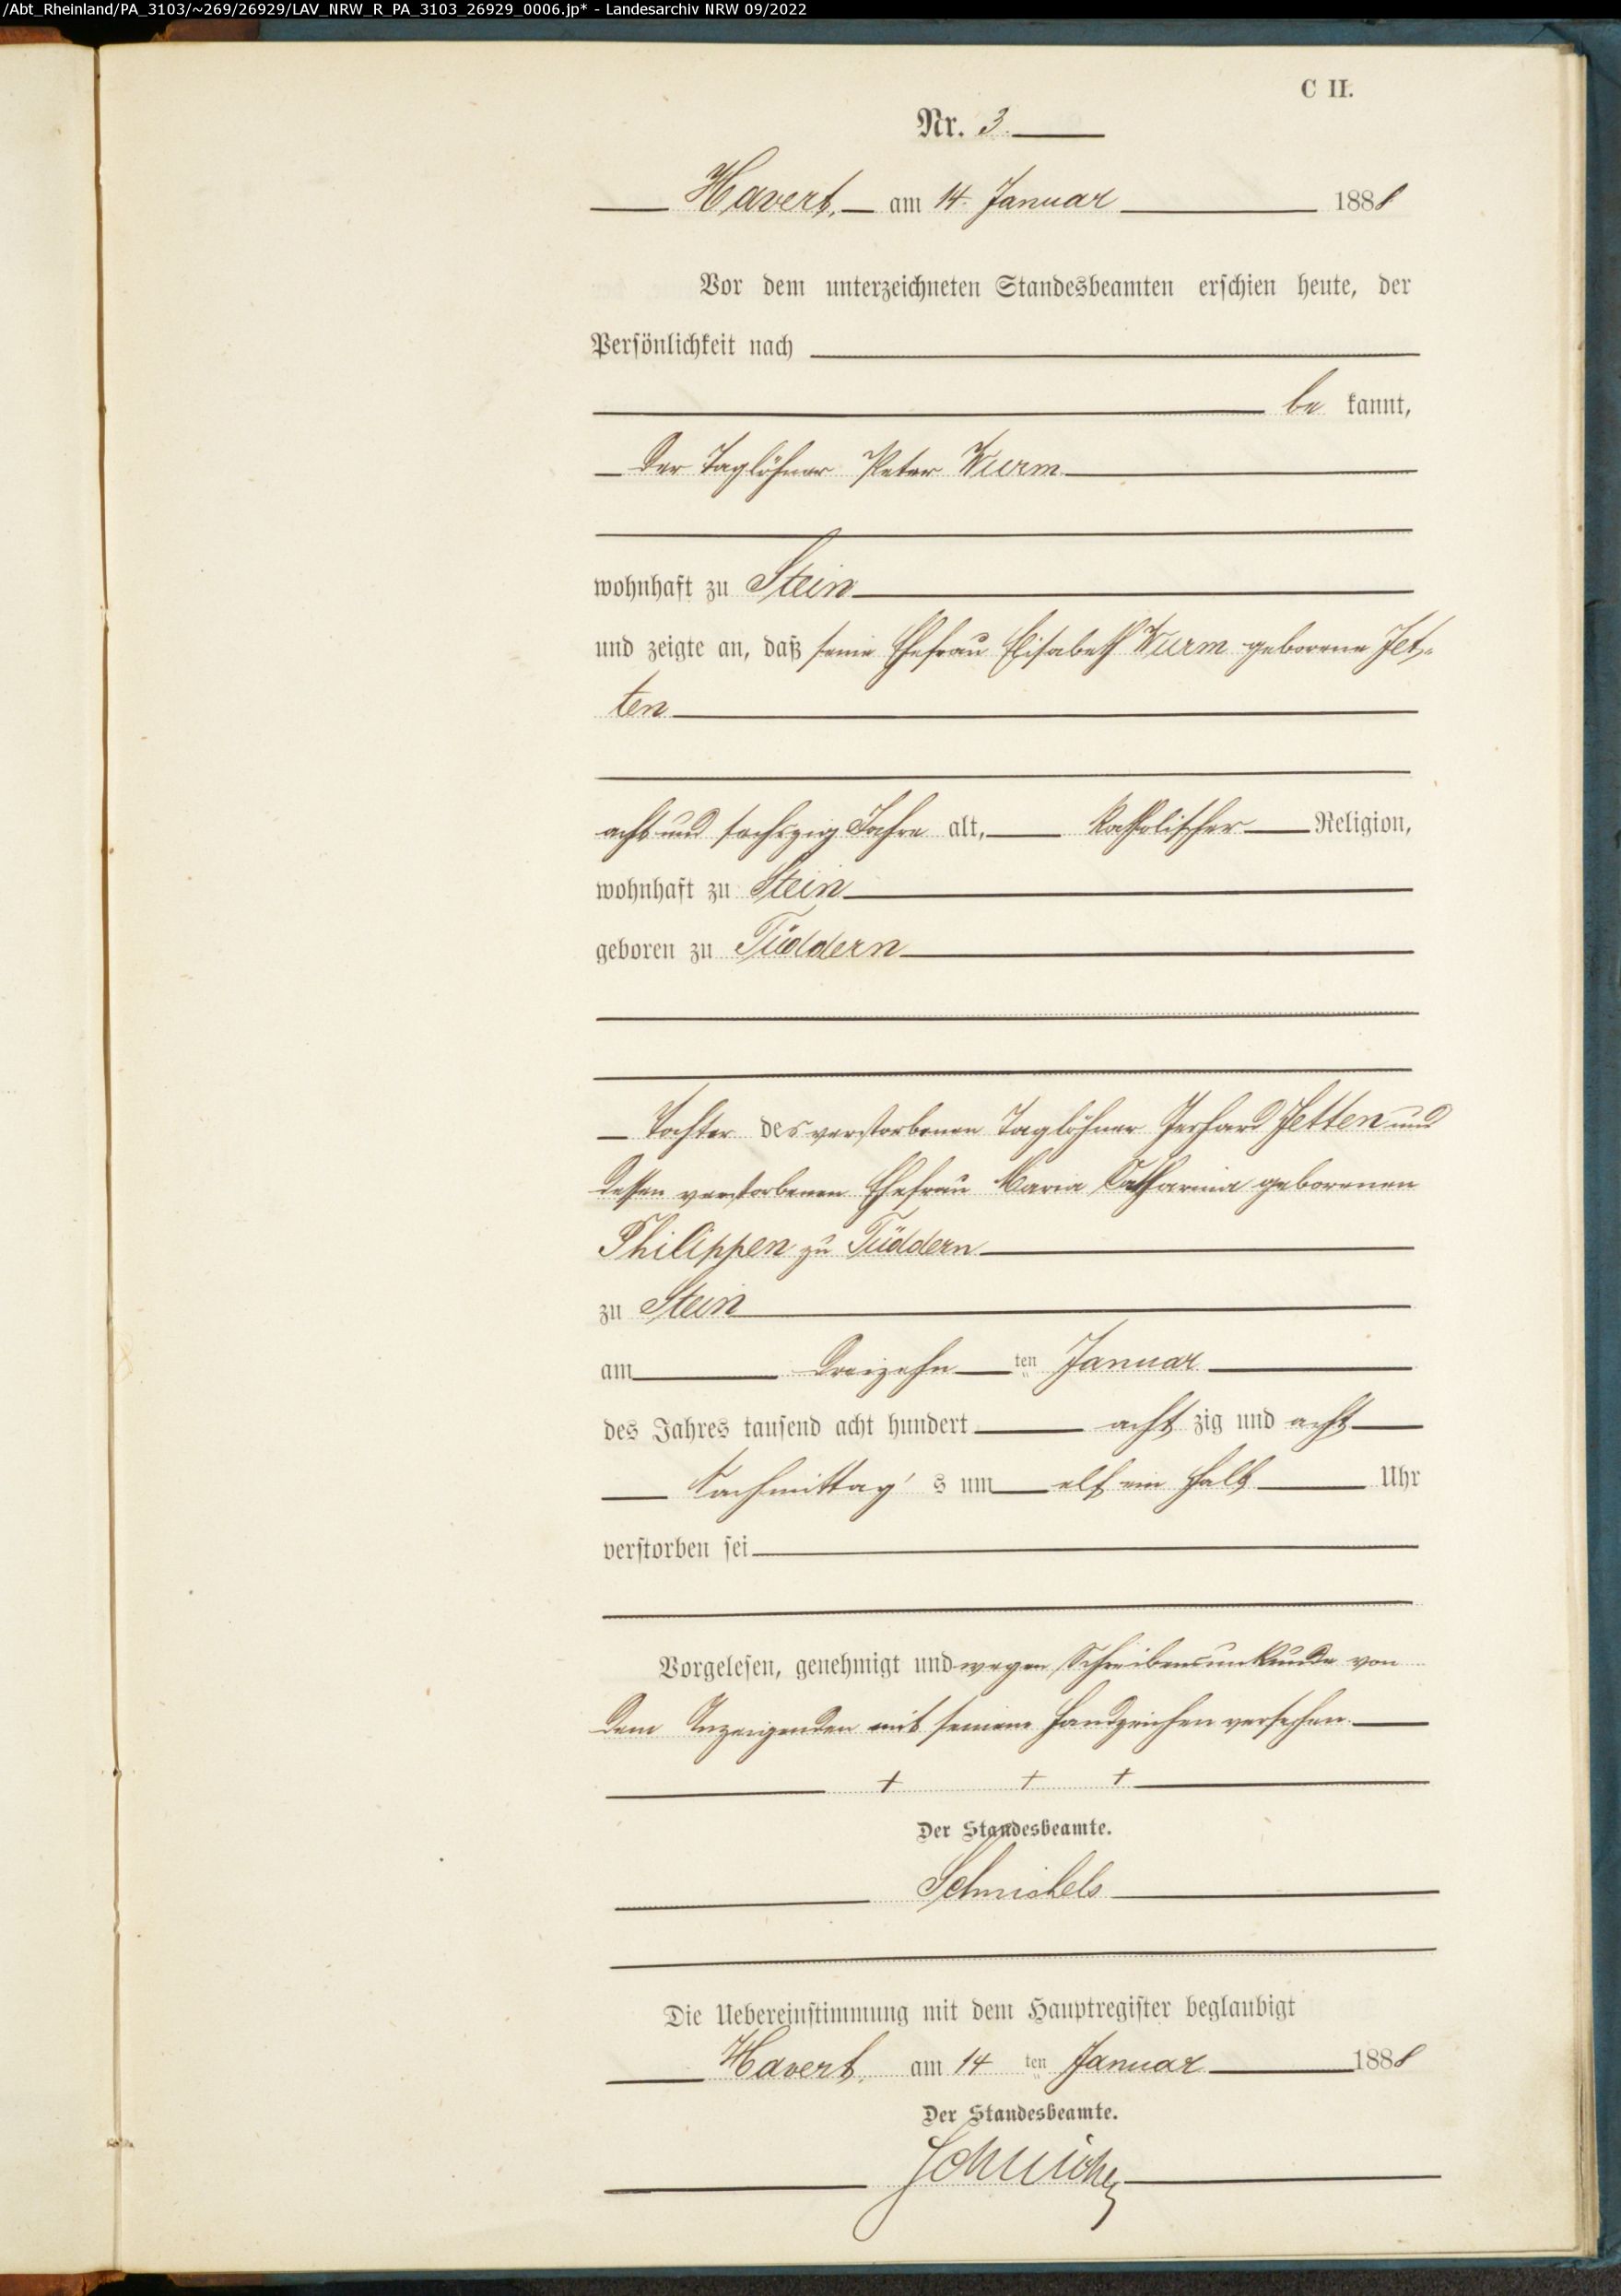 /Abt_Rheinland/PA_3103/~269/26929/LAV_NRW_R_PA_3103_26929_0006.jp* - Landesarchiv NRW 09/2022
C II.
Nr. 3.
Havert, am 14. Januar 1888
Vor dem unterzeichneten Standesbeamten erschien heute, der
Persönlichkeit nach
be kannt,
der Taglöhner Peter Wurm
wohnhaft zu Stein
und zeigte an, daß seine Ehefrau Elisabeth Wurm geborene Jet-
ten
acht und sechszig Jahre alt, katholischer Religion,
wohnhaft zu Stein
geboren zu Tüddern
Tochter des verstorbenen Taglöhner Gerhard Jetten und
dessen verstorbenen Ehefrau Maria Catharina geborenen
Philippen zu Tüddern
zu Stein
am dreizehn ten Januar
des Jahres tausend acht hundert acht zig und acht
Nachmittag's um elf ein halb Uhr
verstorben sei
Vorgelesen, genehmigt und wegen Schreibensunkunde von
dem Anzeigenden mit seinem Handzeichen versehen.
+ + +
Der Standesbeamte.
Schmichels
Die Uebereinstimmung mit dem Hauptregister beglaubigt
Havert, am 14 ten Januar 1888
Der Standesbeamte.